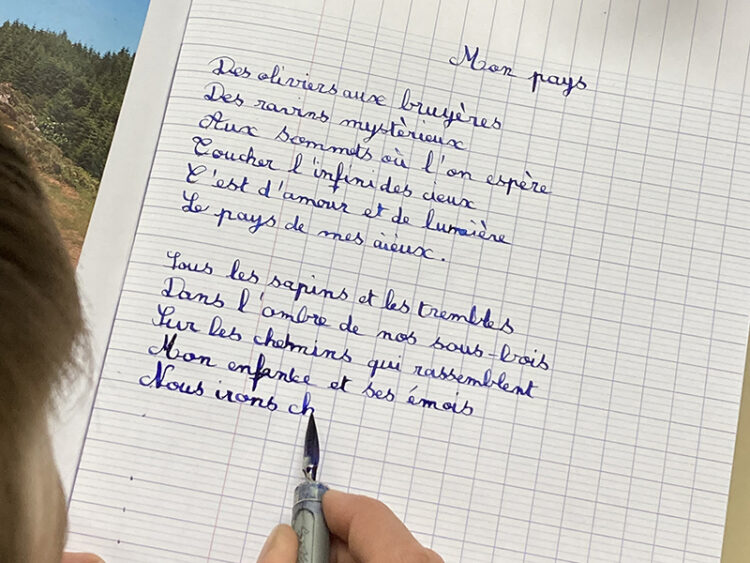 Mon pays
Des oliviers aux bruyères
Des ravins mystèrieux
Aux sommets où l'on espère
Toucher l'infini des cieux
C'est d'amour et de lumière
Le pays de mes aïeux.
Sous les sapins et les trembles
Dans l'ombre de nos sous-bois
Sur les chemins qui rassemblent
Mon enfance et ses émois
Nous irons ch